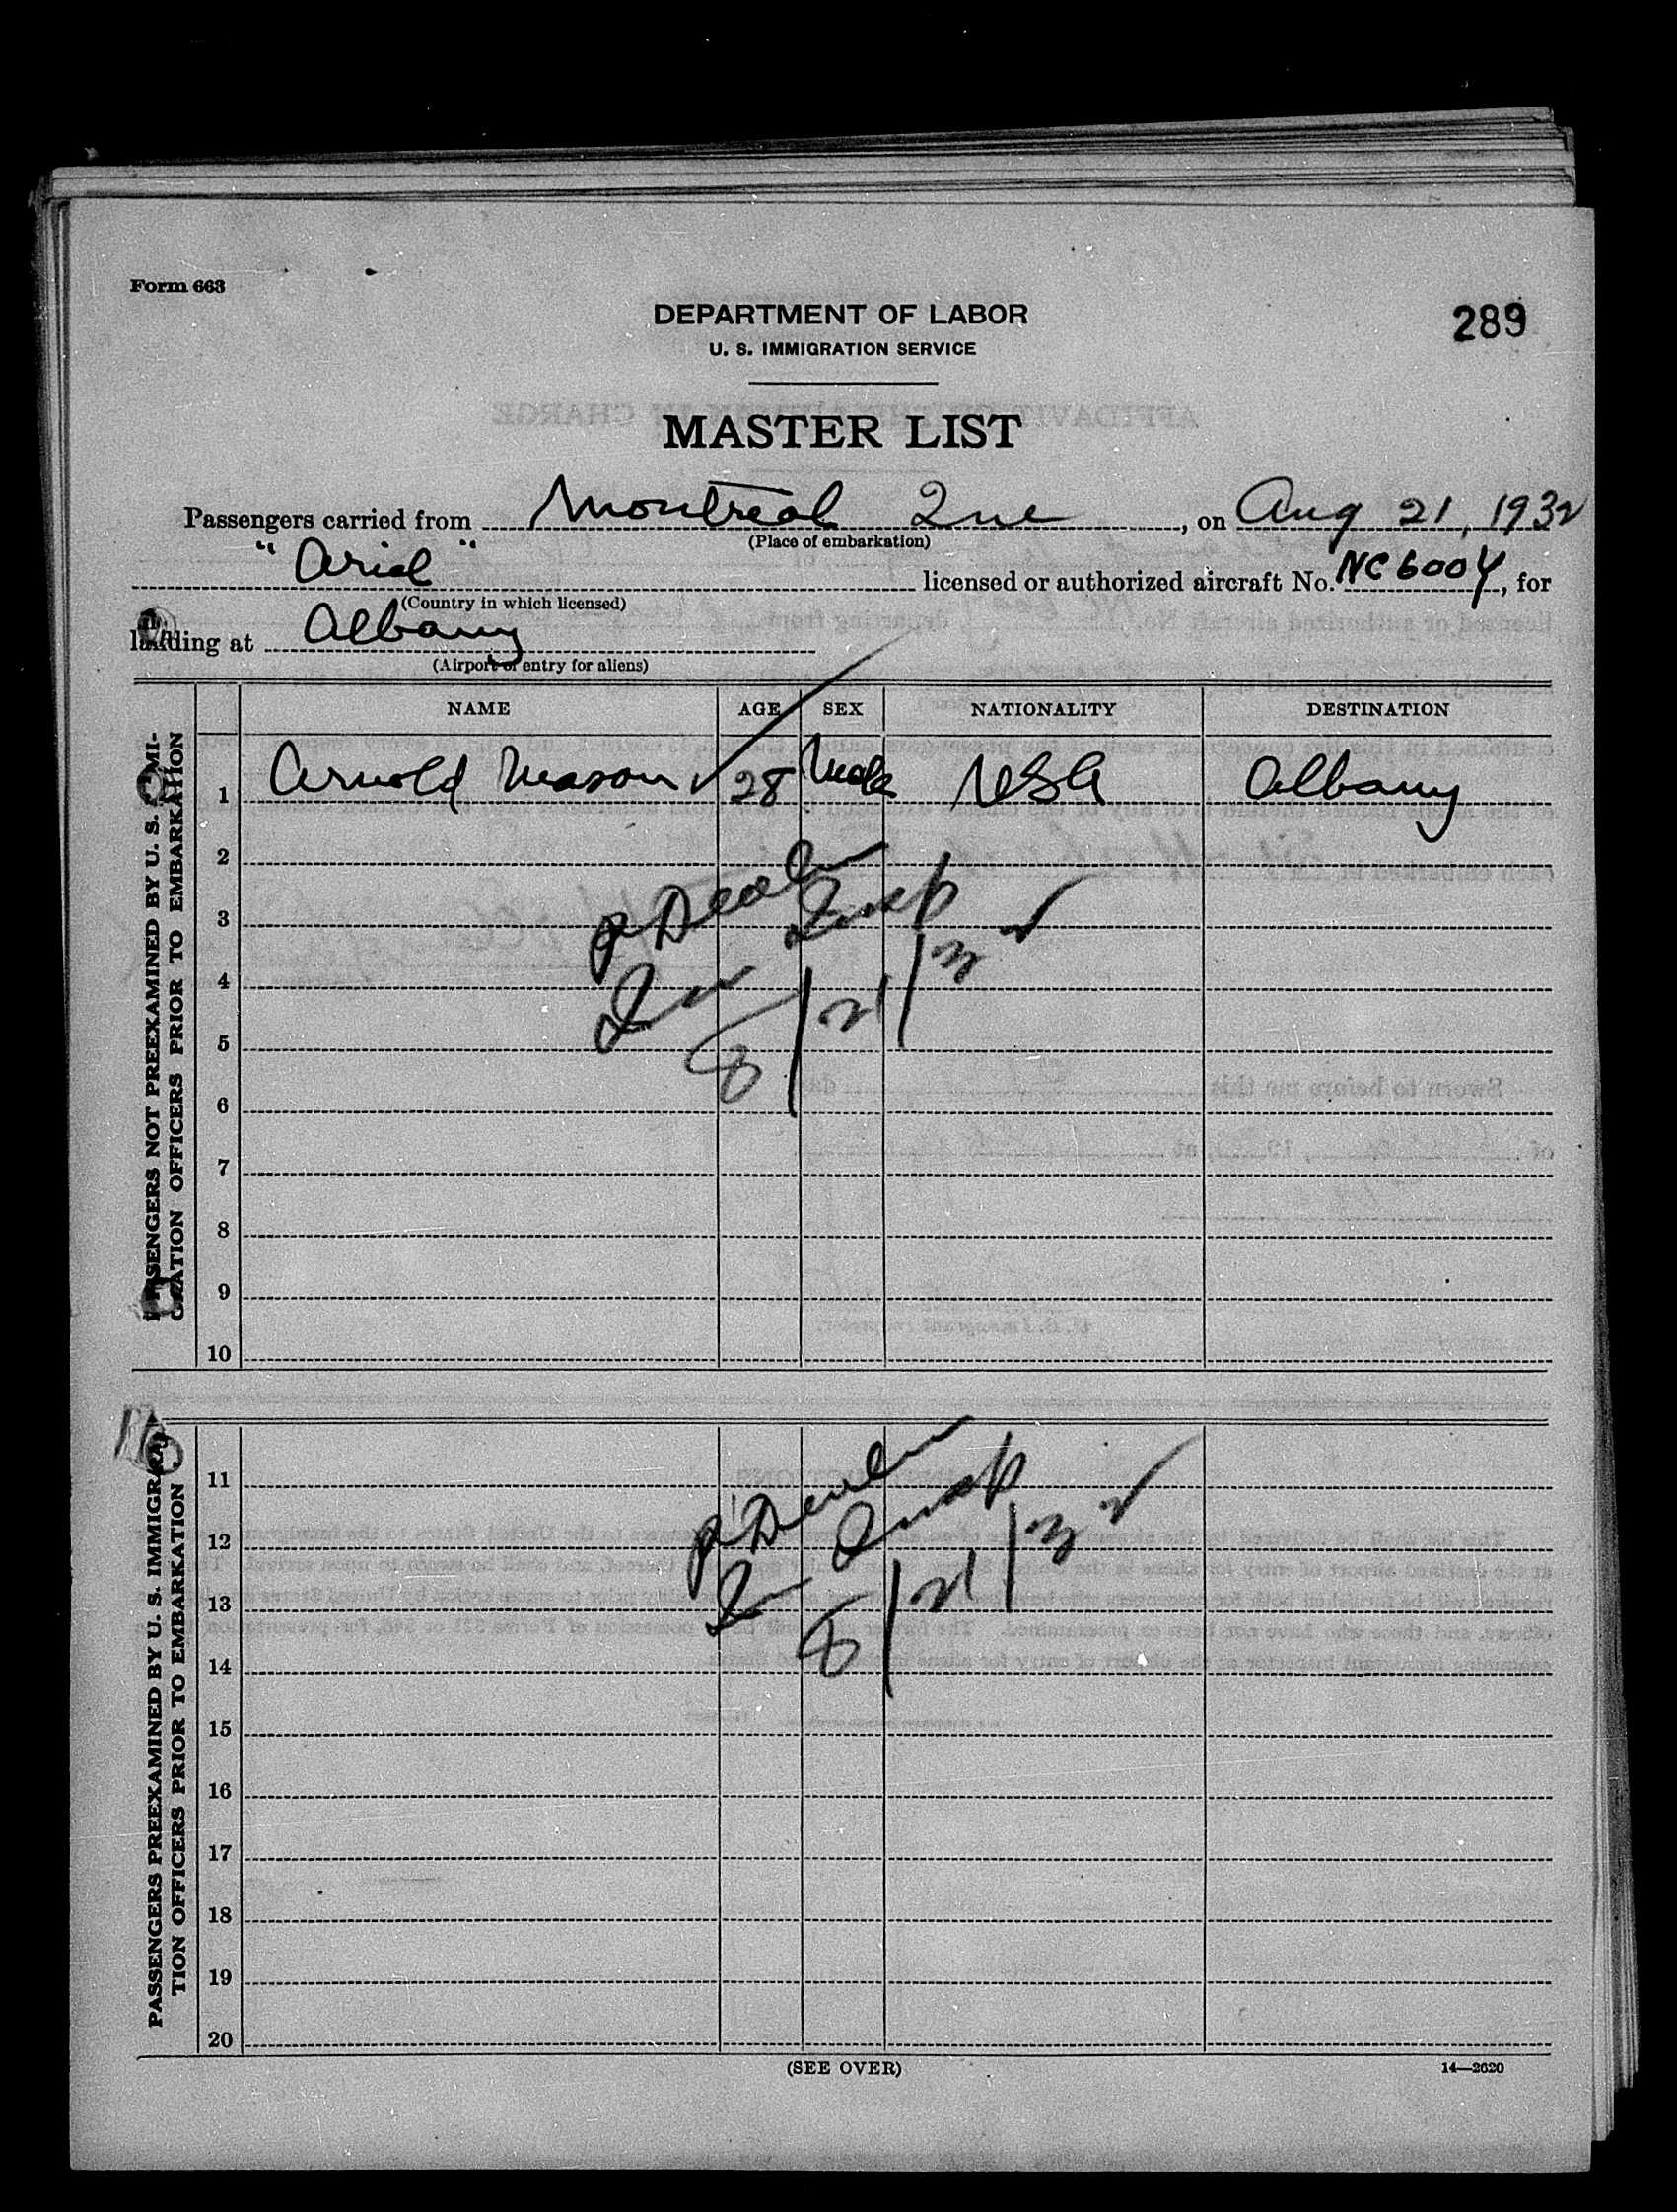 Form 663
289
DEPARTMENT OF LABOR
U. S. IMMIGRATION SERVICE
MASTER LIST
Passengers carried from Montreal Que, on Aug 21, 1932
(Place of embarkation)
"Ariel" licensed or authorized aircraft No. NC600Y, for
(Country in which licensed)
landing at Albany
(Airport of entry for aliens)
NAME AGE SEX NATIONALITY DESTINATION
PASSENGERS NOT PREEXAMINED BY U. S. IMMI-
GRATION OFFICERS PRIOR TO EMBARKATION
1 Arnold Mason 28 Male USA Albany
2
3
4
5
6
7
8
9
10
Insp
8/21/32
PASSENGERS PREEXAMINED BY U. S. IMMIGRA-
TION OFFICERS PRIOR TO EMBARKATION
11
12
13
14
15
16
17
18
19
20
Insp
8/21/32
(SEE OVER)
14—2620